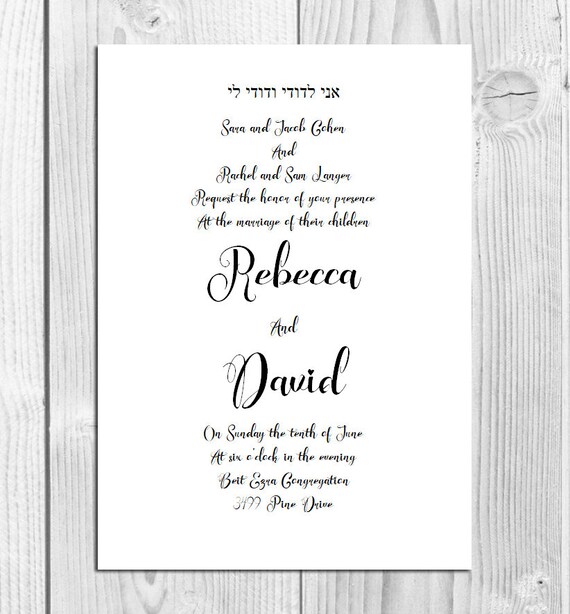 אני לדודי ודודי לי
Sara and Jacob Cohen
And
Rachel and Sam Langer
Request the honor of your presence
At the marriage of their children
Rebecca
And
David
On Sunday the tenth of June
At six o'clock in the evening
Beit Ezra Congregation
3499 Pine Drive